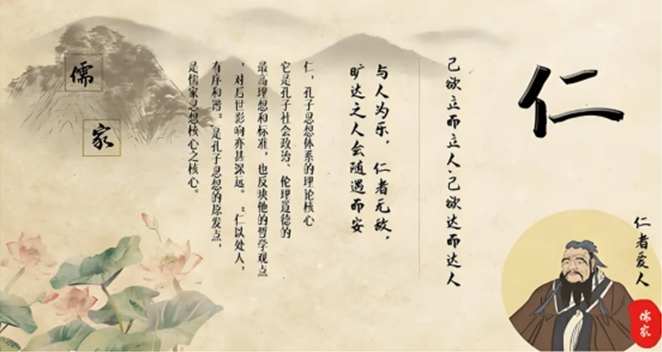 仁
仁者爱人
儒家
己欲立而立人·己欲达而达人
与人为乐，仁者无敌，
旷达之人会随遇而安
仁，孔子思想体系的理论核心
它是孔子社会政治、伦理道德的
最高理想和标准，也反映他的哲学观点
，对后世影响亦甚深远。“仁以处人，
有序和谐。”是孔子思想的原发点，
是儒家思想核心之核心。
儒家